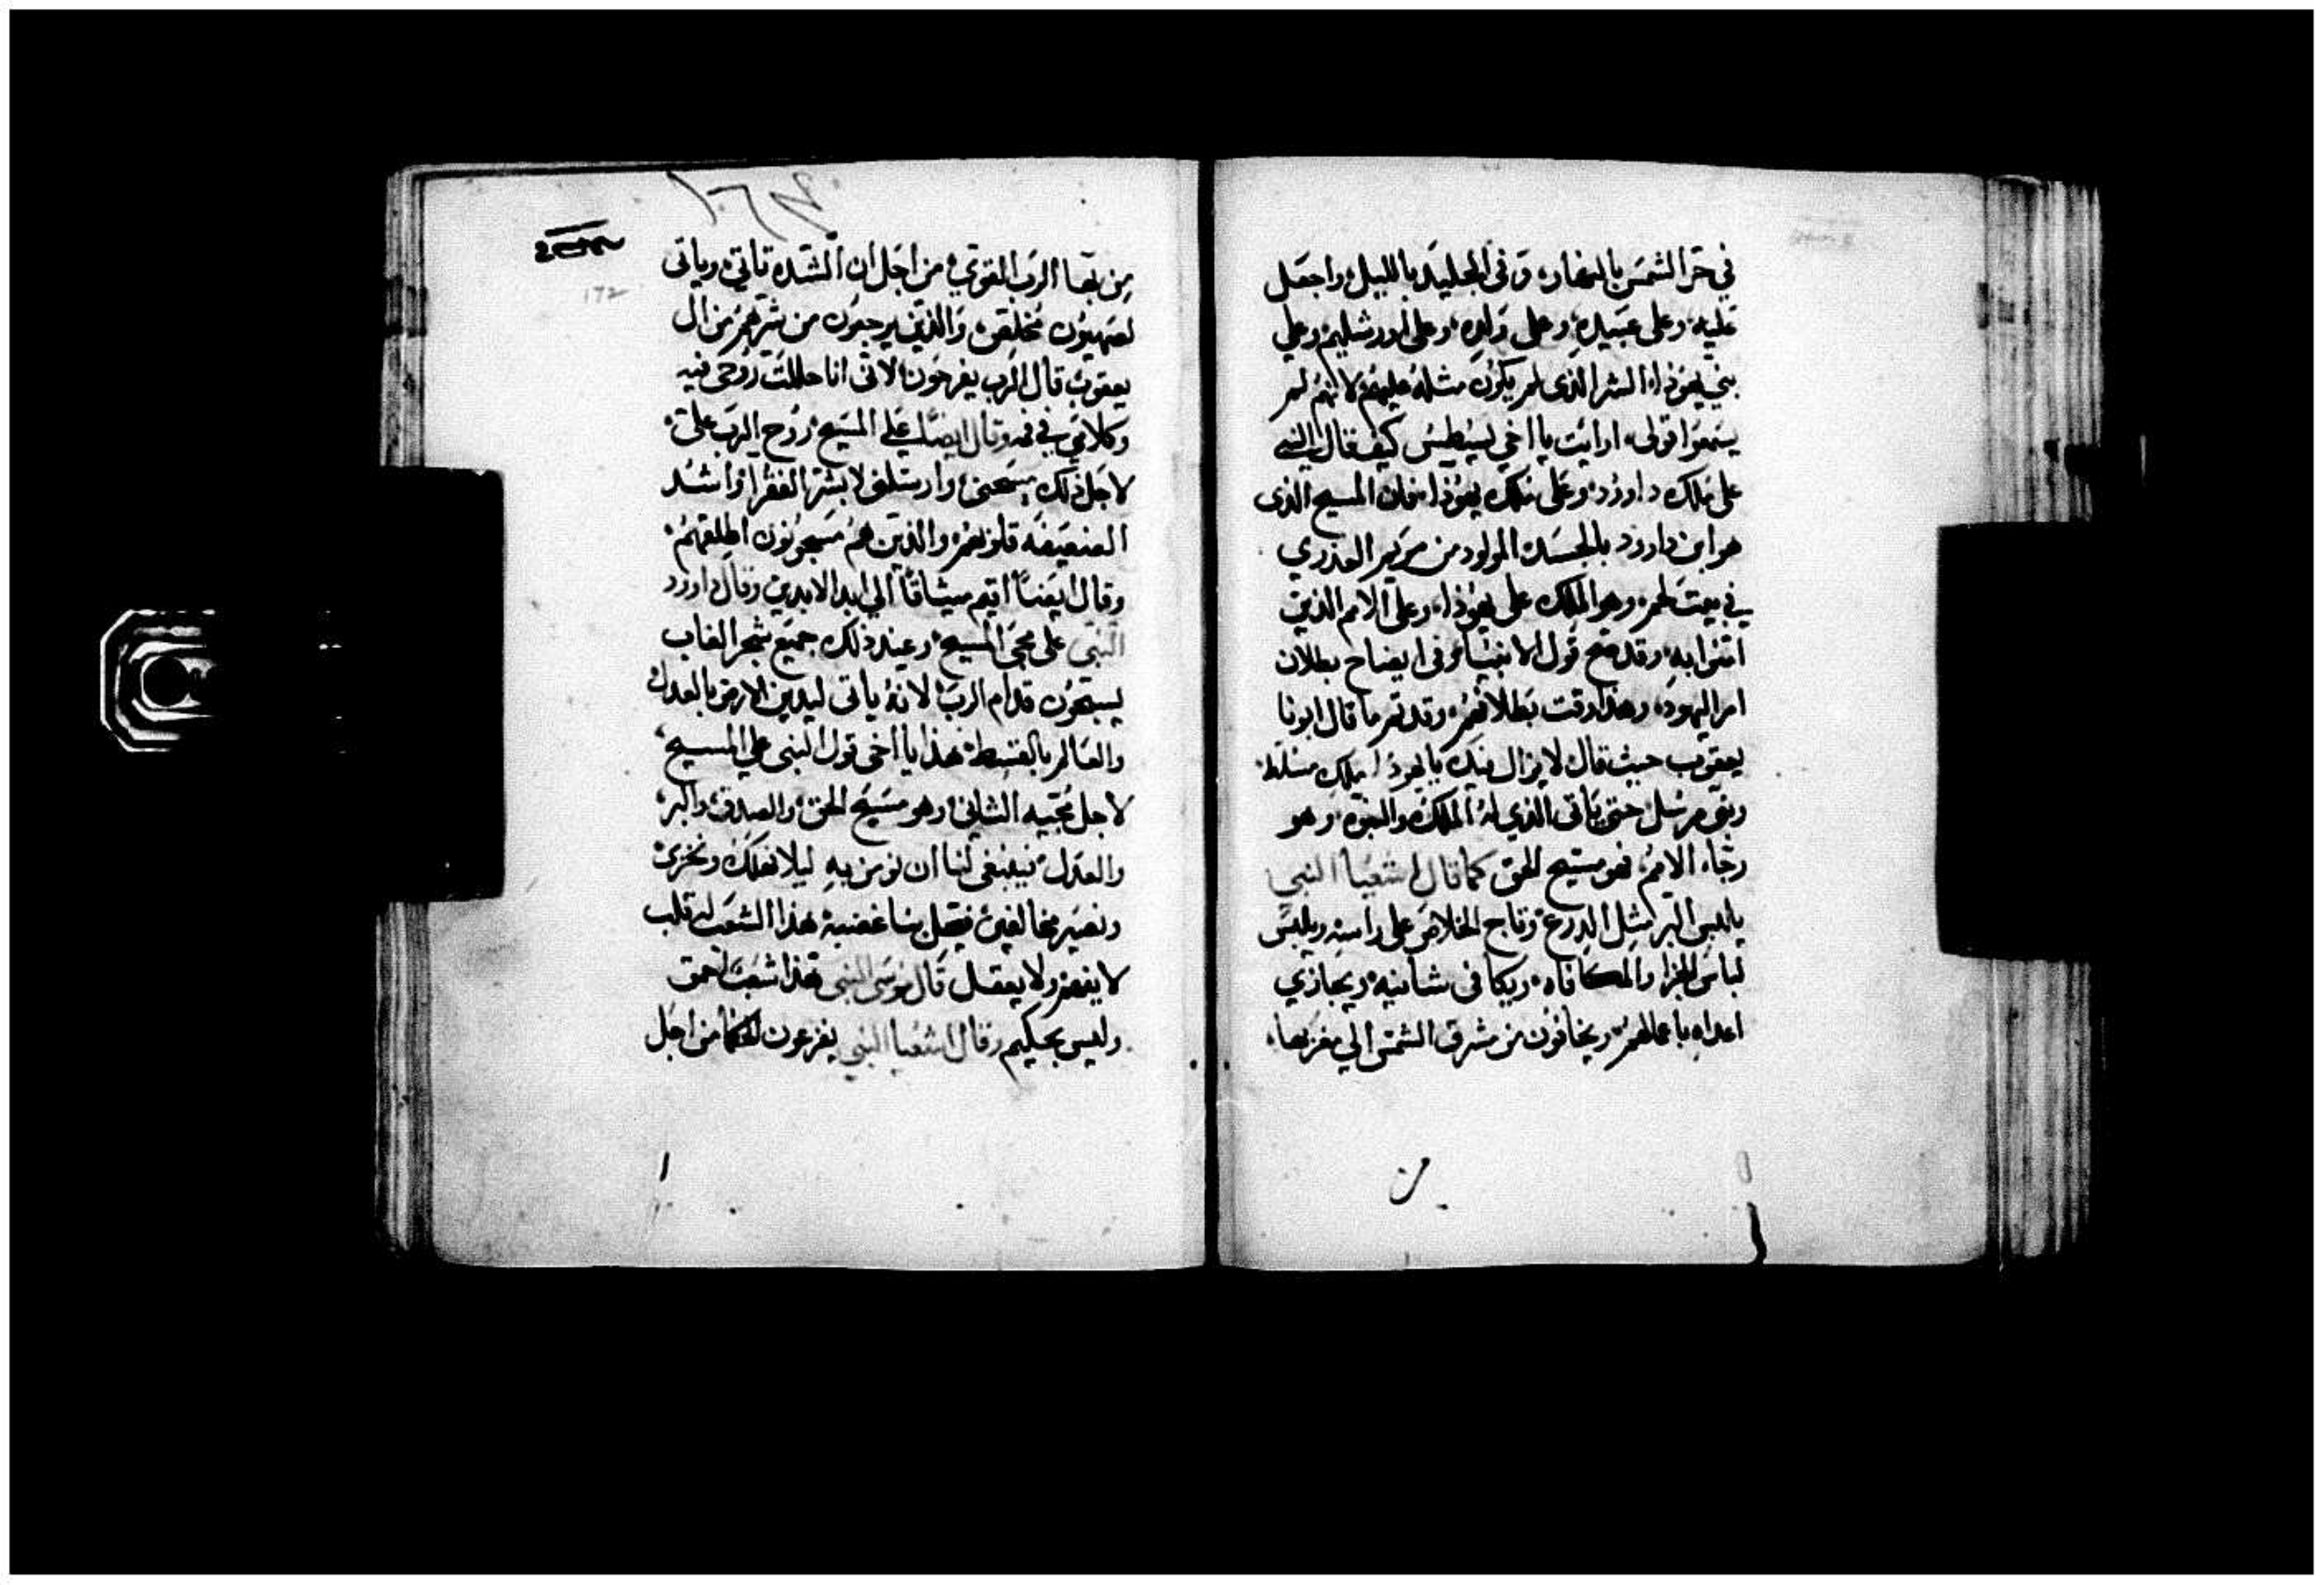 في حر الشمس بالنهار، وفي الجليد بالليل واجعل
عليه وعلى عبيده، وعلى ولده، وعلى اورشليم وعلي
بني يهوذا، الشر الذى لم يكون مثله عليهم لانهم لم
يسمعوا قولى، ارايت يا اخي كيف قال النبي
على ملك داوود، وعلى ملك يهوذا، فان المسيح الذى
هو ابن داوود بالجسد، المولود من مريم العذري
في بيت لحم، وهو الملك على يهوذا، وعلى الامم الذين
امنوا به، وقد صح قول الانبياء وفى ايضاح بطلان
امر اليهود، وهذا وقت بطلانهم، وقد تم ما قال ابونا
يعقوب حيث قال لا يزال منك يا يهوذا ملك مسلط،
ونبى مرسل حتى ياتى الذي له الملك والنبوة، وهو
رجاء الامم، فهو مسيح الحق كما قال اشعيا النبي
يلبس البر مثل الدرع، وتاج الخلاص على راسه ويلبس
لباس الجزا والمكافاه، ويكافى شانيه، ويجازي
اعداه باعمالهم، ويخافون من مشرق الشمس الي مغربها،
من
172
من بها الرب القوي، من اجل ان الشده تاتي، وياتى
لصهيون مخلص، والذين يرجعون من شرهم من ال
يعقوب قال الرب يفرحون، لانى انا حللت روحى فيه
وكلامي في فمه وقال ايضا علي المسيح، روح الرب علي،
لاجل ذلك مسحنى، وارسلنى لابشر الفقرا واشدد
الضعيفه قلوبهم، والذين هم مسجونون اطلقهم،
وقال ايضاً اقيم ميثاقاً الي ابد الابدين وقال داوود
النبى على مجى المسيح، وعند ذلك جميع شجر الغاب
يسبحون قدام الرب، لانه ياتى ليدين الارض بالعدل
والعالم بالقسط، هذا يا اخى قول النبى علي المسيح،
لاجل مجيه الثاني، وهو مسيح الحق، والصدق، والبر،
والعدل، فينبغى لنا ان نومن به ليلا نهلك ونخزى
ونصير مخالفين فيحل بنا غضبه، هذا الشعب له قلب
لا يفهم ولا يعقل قال موسى النبى هذا شعب احمق
وليس بحكيم وقال اشعيا النبي يفزعون الحكما من اجل